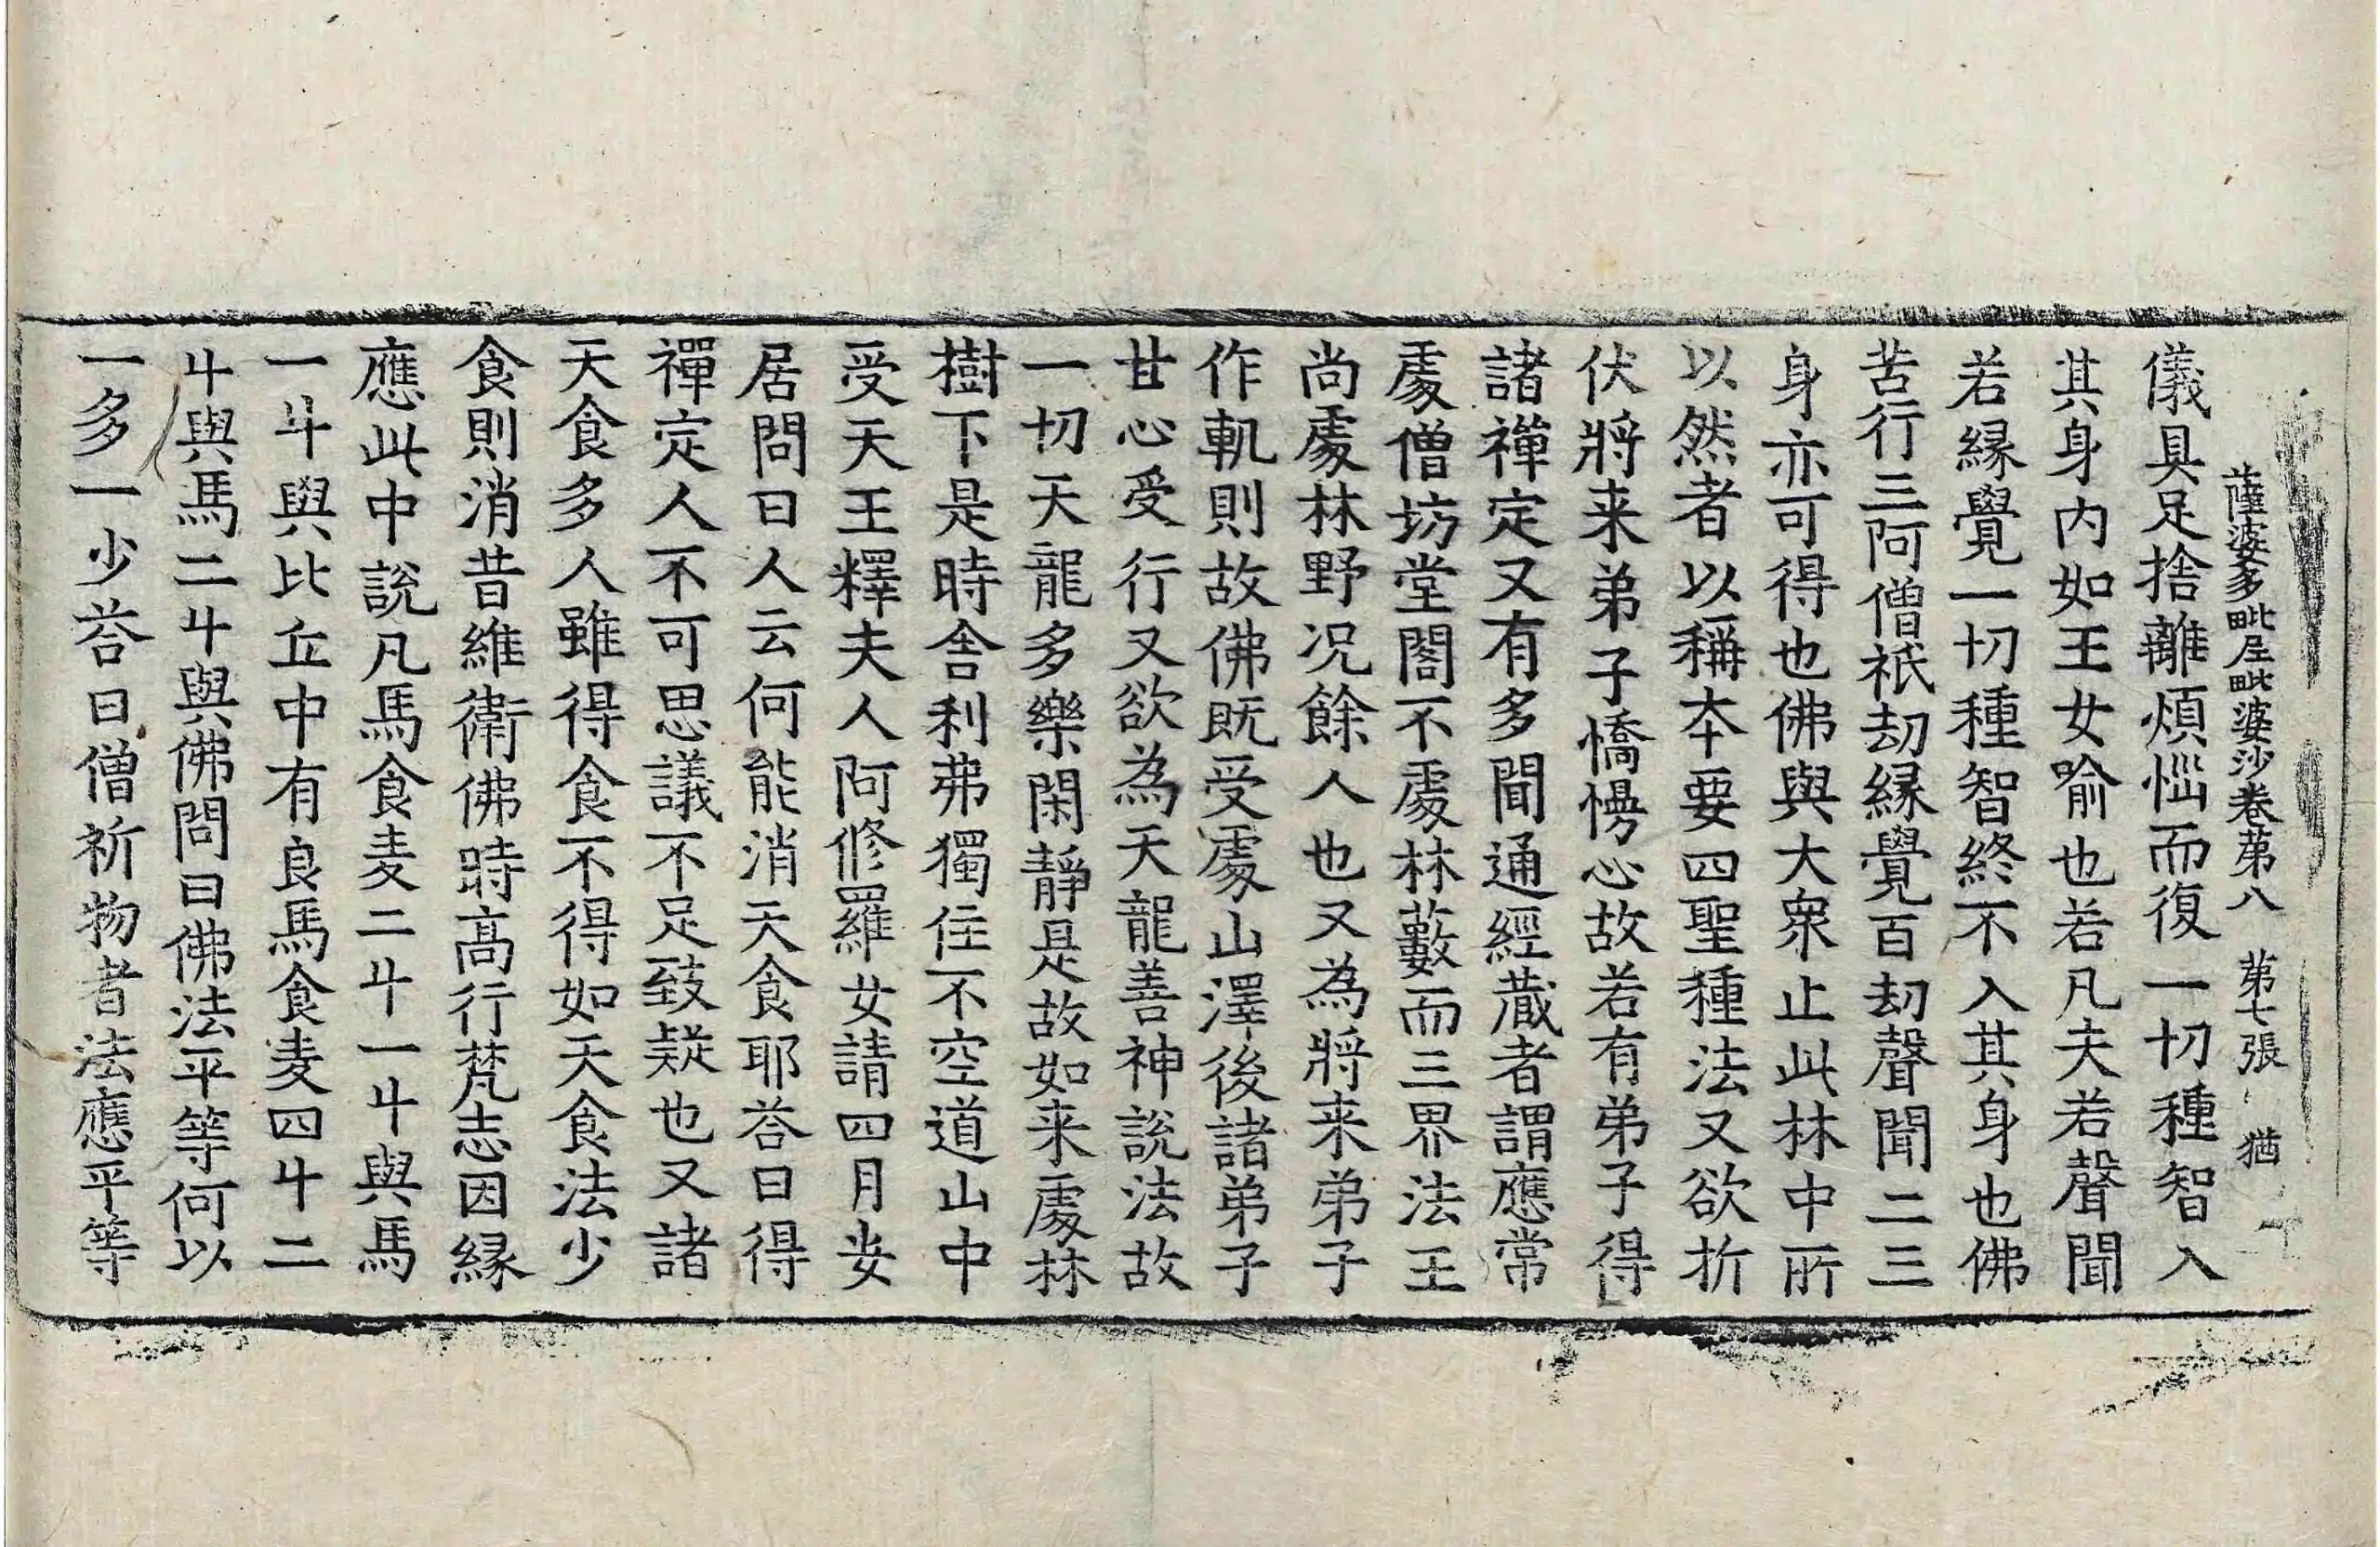 薩婆多毗尼毗婆沙卷苐八 苐七張 猶
儀具足捨離煩惱而復一切種智入
其身内如王女喻也若凡夫若聲聞
若縁覺一切種智終不入其身也佛
苦行三阿僧祇劫縁覺百劫聲聞二三
身亦可得也佛與大衆止此林中所
以然者以稱本要四聖種法又欲折
伏將来弟子憍慢心故若有弟子得
諸禪定又有多聞通經藏者謂應常
處僧坊堂閣不處林藪而三界法王
尚處林野况餘人也又為將来弟子
作軌則故佛既受處山澤後諸弟子
甘心受行又欲為天龍善神説法故
一切天龍多樂閑靜是故如来處林
樹下是時舎利弗獨住不空道山中
受天王釋夫人阿修羅女請四月安
居問曰人云何能消天食耶荅曰得
禪定人不可思議不足致疑也又諸
天食多人雖得食不得如天食法少
食則消昔維衛佛時高行梵志因縁
應此中説凡馬食麦二斗一斗與馬
一斗與比丘中有良馬食麦四斗二
斗與馬二斗與佛問曰佛法平等何以
一多一少荅曰僧祈物者法應平等